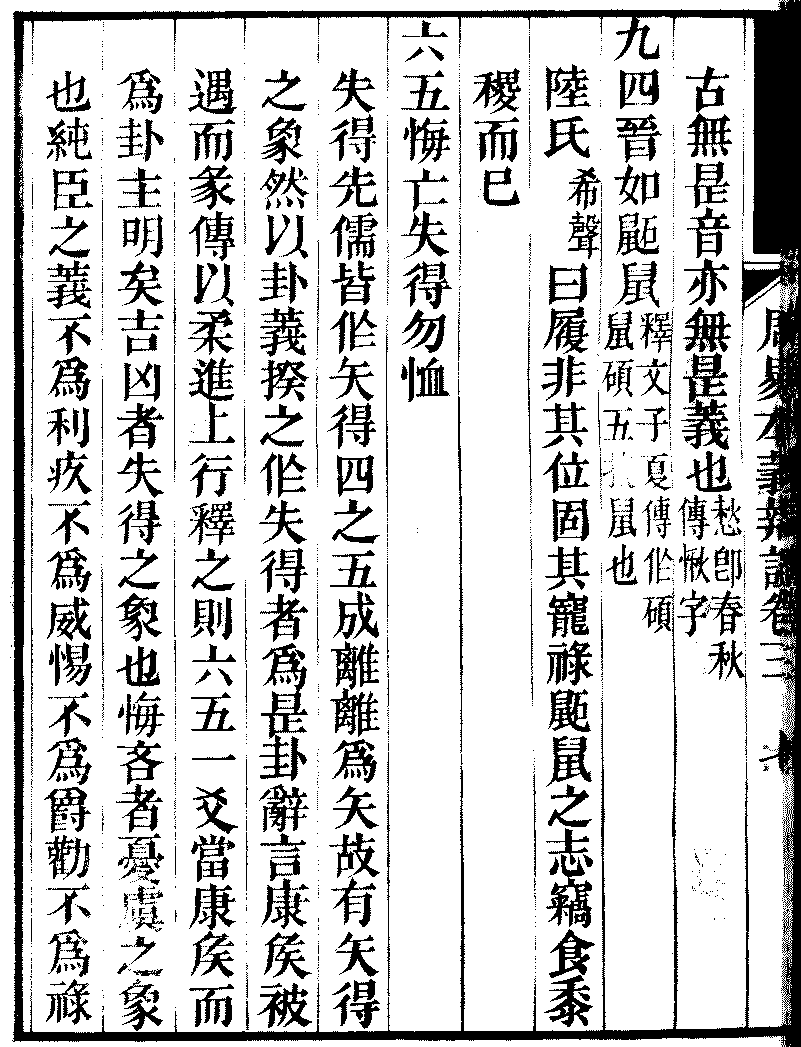 周易本義辨證卷三
古無是音亦無是義也愁卽春秋
傳愀字
九四晉如鼫鼠釋文子夏傳作碩
鼠碩五技鼠也
陸氏希聲曰履非其位固其寵祿鼫鼠之志竊食黍
稷而已
六五悔亡失得勿恤
失得先儒皆作矢得四之五成離離爲矢故有矢得
之象然以卦義揆之作失得者爲是卦辭言康侯被
遇而彖傳以柔進上行釋之則六五一爻當康侯而
爲卦主明矣吉凶者失得之象也悔吝者憂虞之象
也純臣之義不爲利疚不爲威惕不爲爵勸不爲祿